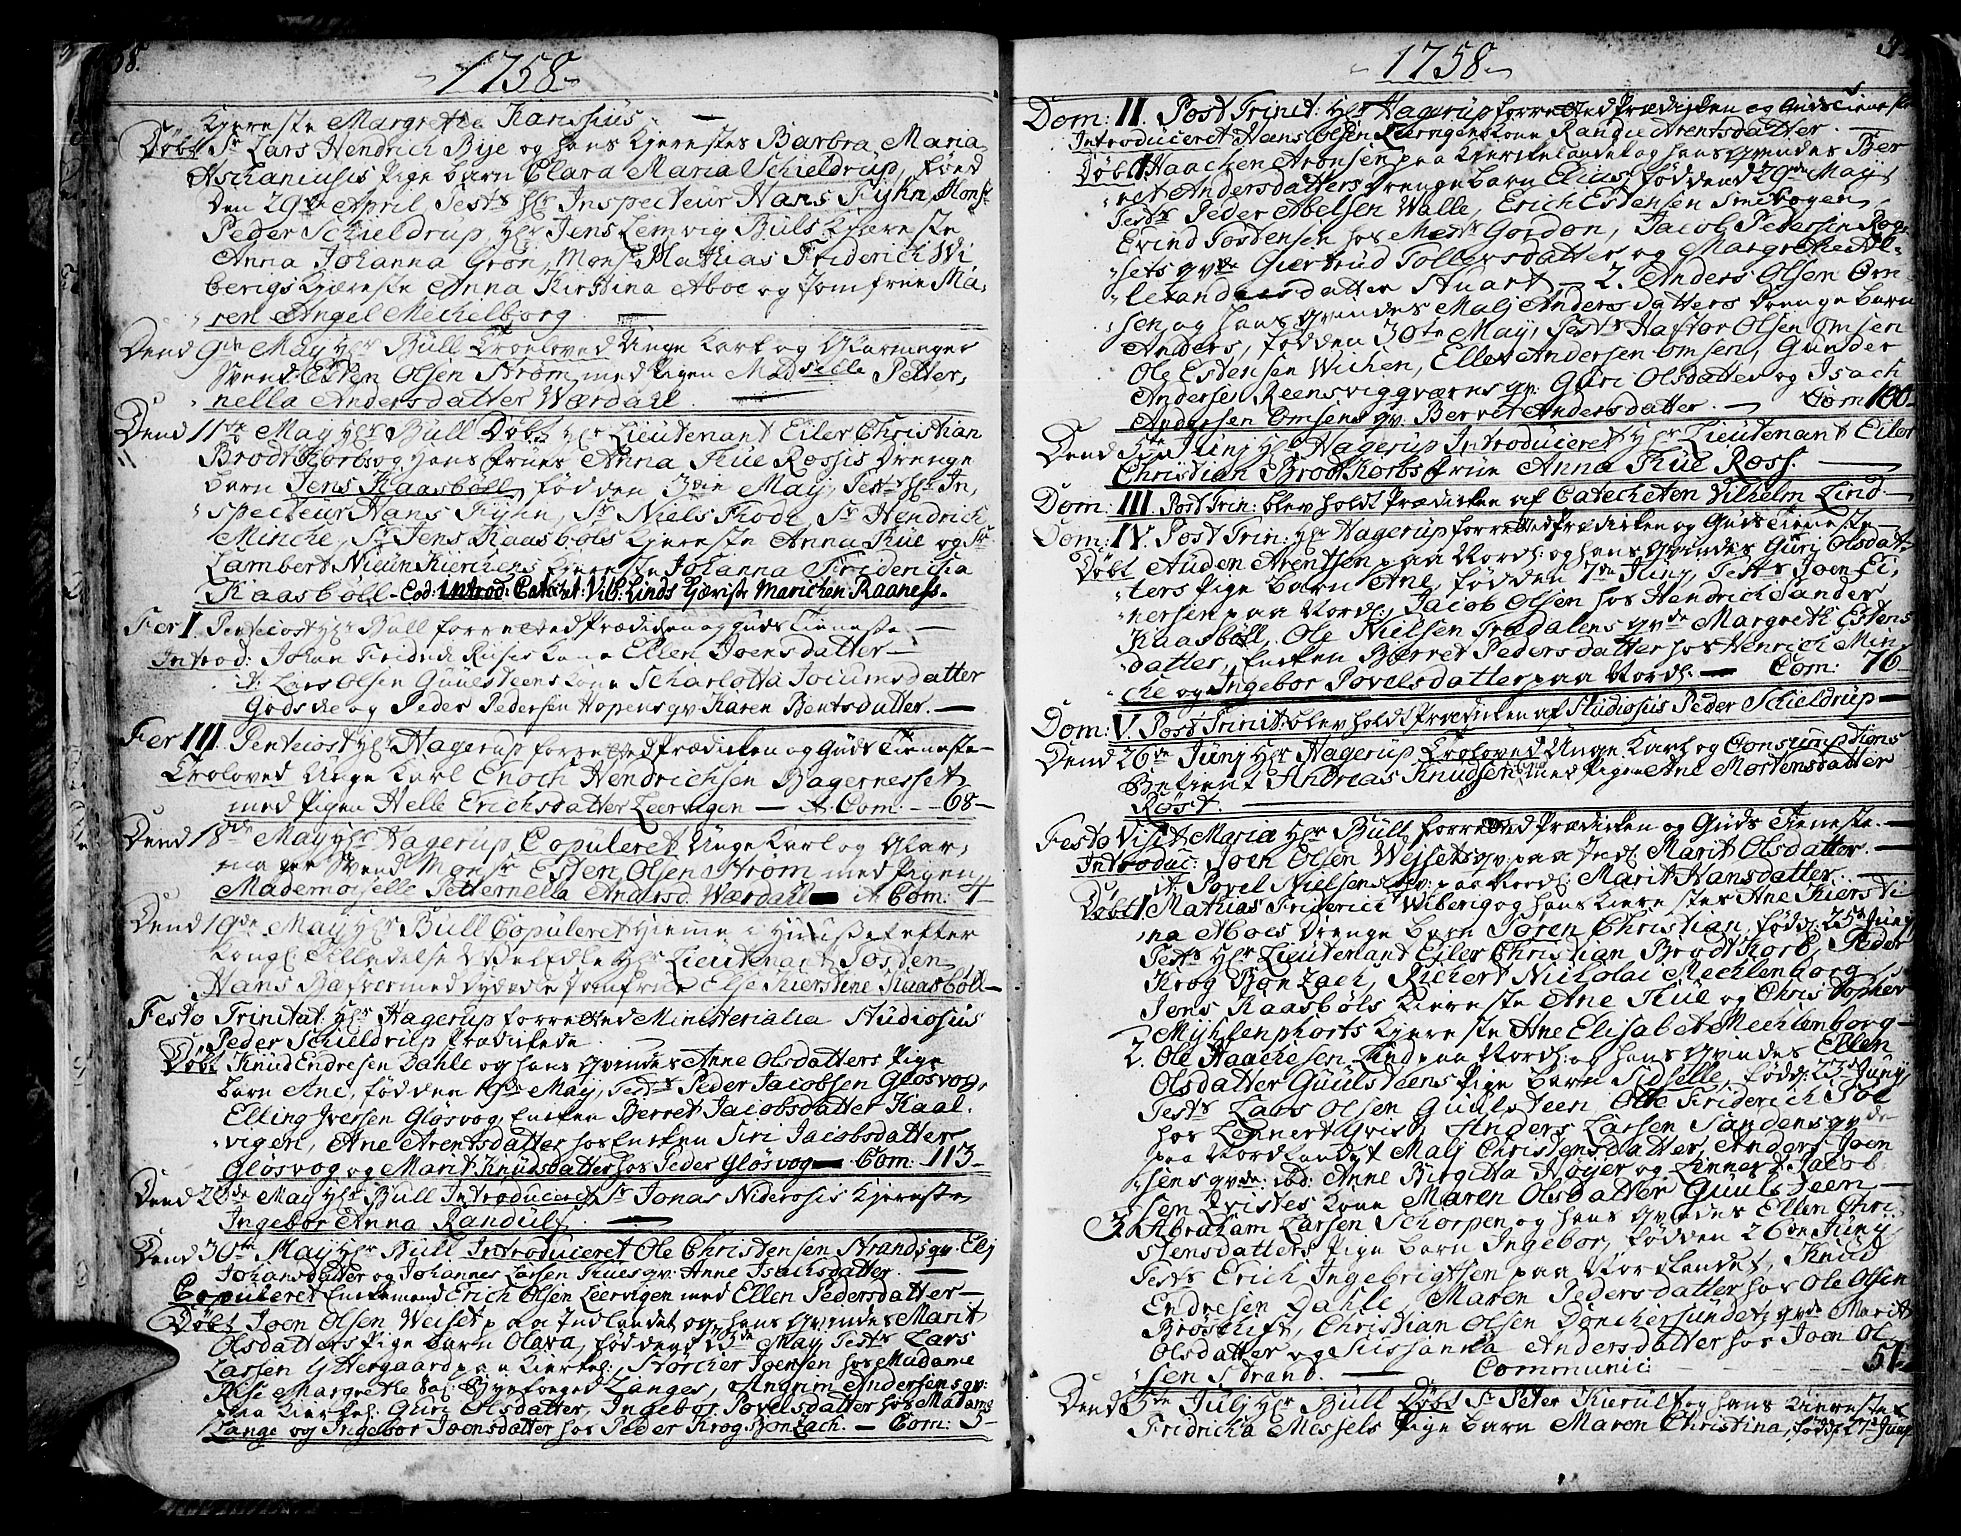 58.
1758
Kjereste Margrethe
Døbt Sr Lars Hendrich Bÿe og hans Kjerestes Barbra Maria
Aschaniusis Pige barn Clara Maria Schieldrup, fôed
den 29de April Test: Hr Inspecteur Hans Fÿhn, Mons:
Peder Schieldrup, Hr Jens Lemvig Bùls Kjæreste
Anna Johanna Grôn, Mons: Mathias Friderich Wi
berigs Kjæreste Anna Kirstina Aboe og Jomfrue Ma,
ren Angel Mechelborg
Dend 9de Maÿ Hr Bùll Troeloved Unge Karl og Glarmager
Svend Esten Olsen Strôm med Pigen Madselle Petter,
nella Andersdatter Wærdahl.
Dend 11te Maÿ Hr Bùll Døbt Hr Lieutenant Eiler Christian
Brodtkorbs og hans Frues Anna Kùe Rossis drenge
barn Jens Kaasbôll, fôdden 3die Maÿ, Test: Hr In,
specteur Hans Fÿhn, Sr Niels Kode, Sr Hendrich
Minche, Sr Jens Kaasbôls Kjereste Anna Kùe og Sr
Lambert Kierchens Kjereste Johanna Fridericia
Kaasbôll. Eod: Introd: Catechet: Vilh: Linds Kjæriste Marichen Raaness.
Fer I. Pentecost Hr Bùll forretted Prædicken og Guds Tieneste
Introd: Johan Fridrich Kone Ellen Joensdatter
it: Lars Olsen Guulsteens Kone Scharlotta datter
Godske og Peder Pedersen Hopens qv: Karen Bentsdatter.
Fer III. Pentecost Hr Hagerup forretted Prædicken og Guds Tieneste
Troloved Unge Karl Enoch Hendrichsen Bagernesset
med Pigen Helle Erichsdatter Leervigen — A Com: 68
Dend 18de Maÿ Hr Hagerup Copuleret Unge Karl og Glar,
mager Svend Monsr Esten Olsen Strôm med Pigen
Mademoiselle Petternella Andersd: Wærdahl A Com: 4
Dend 19de Maÿ Hr Bùll Copuleret Hieme i Huuset efter
Kongl: Tilladelse Vdeledle Hr Lieutenant
Hans med Jomfrue Else Kierstine Kaasbôll
Festo Trinitat: Hr Hagerup forretted Ministerialia Studiosus
Peder Schieldrup Prædikede
Døbt Knud Endresen Dahle og hans Qvindes Anne Olsdatters Pige
barn Ane, fôdden 19de Maÿ, Test: Peder Jacobsen Glosvog,
Elling Iversen Glosvog, Encken Berret Jacobsdatter Kaal,
vigen, Ane Arentsdatter hos Encken Siri Jacobsdatter
Glosvog og Marit Knudsdatter hos Peder Glosvog Com: 113
Dend 26de Maÿ Hr Bùll Introduceret Sr Jonas Niderosis Kjereste
Ingebor Anna Randulf
Dend 30te Maÿ Hr Bùll Introduceret Ole Christensen Strands qv: Elj
Johansdatter og Johannes Larsen Kues qv: Anne Isachsdatter
Copuleret Enckemand Erich Olsen Leervigen med Ellen Pedersdatter
Døbt Joen Olsen Weiset paa Indlandet og hans Qvindes Marit
Olsdatters Pige barn Olava, fôddend 13de Maÿ Test: Lars
Larsen Ÿttergaard paa Kierkel: Stôrcher Joensen hos Madame
Margrethe Langes, Angrim Andersens qv:
paa Kierkel: Guri Olsdatter, Ingebor Povelsdatter hos Madame
Lange og Ingebor Joensdatter hos Peder Krog Bonzach. — Com: 5
1758
Dom: II. Post Trinit: Hr Hagerup forretted Prædicken og Guds Tieneste
Introduceret Hans Olsen Leervigens Kone Randie Arentsdatter
Døbt 1. Haachen Aronsen paa Kierckelandet og hans Qvindes Ber
ret Andersdatters drenge barn Elias, fôddend 29de Maÿ
Test: Peder Abelsen Walle, Erich Estensen Smebogen
Evind Tostensen hos Mads Gordon, Jacob Pedersen Rog
sets qvd: Giertrud Tollersdatter og Margrethe Al
lexandersdatter Stuart. 2. Anders Olsen Om
sen og hans Qvindes Malj Anders datters drenge barn
Anders, fôdden 30te Maÿ, Test: Haftor Olsen Omsen
Ole Estensen Wichen, Eller Andersen Omsen, Gunder
Anderse Reensviggværns qv: Guri Olsdatter og Isach
Andersen Omsens qv: Berret Andersdatter. — Com 100
Dend 5te Junj Hr Hagerup Introduceret Hr Lieutenant Eiler
Christian Brodtkorbs frue Anna Kùe Ross.
Dom: III. Post Trin: blev holdt Prædicken af Catecheten Vilhelm Lind
Dom: IV. Post Trin: Hr Hagerup forretted Prædicken og Guds Tieneste
Døbt Auden Arentsen paa Nordl: og hans Qvindes Guri Olsdat
ters Pige barn Ane, fôdden 7de Junj, Test: Joen Ei,
nersen paa Nordl:, Jacob Olsen hos Hendrich Sander
Kaasbôll, Ole Nielsen Trædalens qvde Margreth Estens
datter, Encken Berret Pedersdatter hos Henrich Min
che og Ingebor Povelsdatter paa Nordl: — Com: 76
Dom: V. Post Trinit: blev holdt Prædicken af Studiosus Peder Schieldrup
Dend 26de Junj Hr Hagerup Troloved Unge Karl og Consumptions
Betient Andreas Knudsen med Pigen Ane Mortensdatter
Røst.
Festo Visit: Mariæ Hr Bùll forretted Prædicken og Guds Tieneste.
Introduc: Joen Olsen Wejsets qv: paa Indl: Marit Olsdatter.
it Povel Nielsens qv: paa Nordl: Marit Hansdatter.
Døbt 1. Mathias Friderich Wiberig og hans Kierestes Ane Kiersti
na Aboes drenge barn Sôren Christian, fôdd: 25de Junj
Test: Hr Lieutenant Ejler Christian Brodtkorb, Peder
Krog Bonzach, Richert Nicholai Mechlenborg
Jens Kaasbôls Kiereste Ane Kùe og Christopher
Mÿhlenphorts Kjereste Ane Elisabet Mechlenborg
2. Ole Haachesen Lind paa Nordl: og hans Qvindes Ellen
Olsdatter Guulsteens Pige barn Sidselle, fôdd: 23de Junj,
Test: Lars Olsen Guulsteen, Otte Friderich
hos Lennert Qvist, Anders Larsen Sandens qvde
paa Nordlandet Malj Christensdatter, Anders Joen
sens qvde: ibd: Anne Birgitta Hôÿer og Lennert Jacob
sen Qvistes Kone Maren Olsdatter Guulsteen
3. Abraham Larsen Schorpen og hans Qvindes Ellen Chri
stensdatters Pige barn Ingebor, fôdden 26de Junj
Test: Erich Ingebrigtsen paa Nordlandet, Knud
Endresen Dahle Maren Pedersdatter hos Ole Olsen
Brôskift, Christian Olsen Donchersundets qvde Marit
Olsdatter og Susanna Andersdatter hos Joen Ol
sen Strand. — Communic: 51
Dend 5te Julj Hr Bùll Døbt Sr Peter Kurulf og hans Kierestes
Fridricha Messels Pige barn Maren Christina, fôdd: 27de Junj